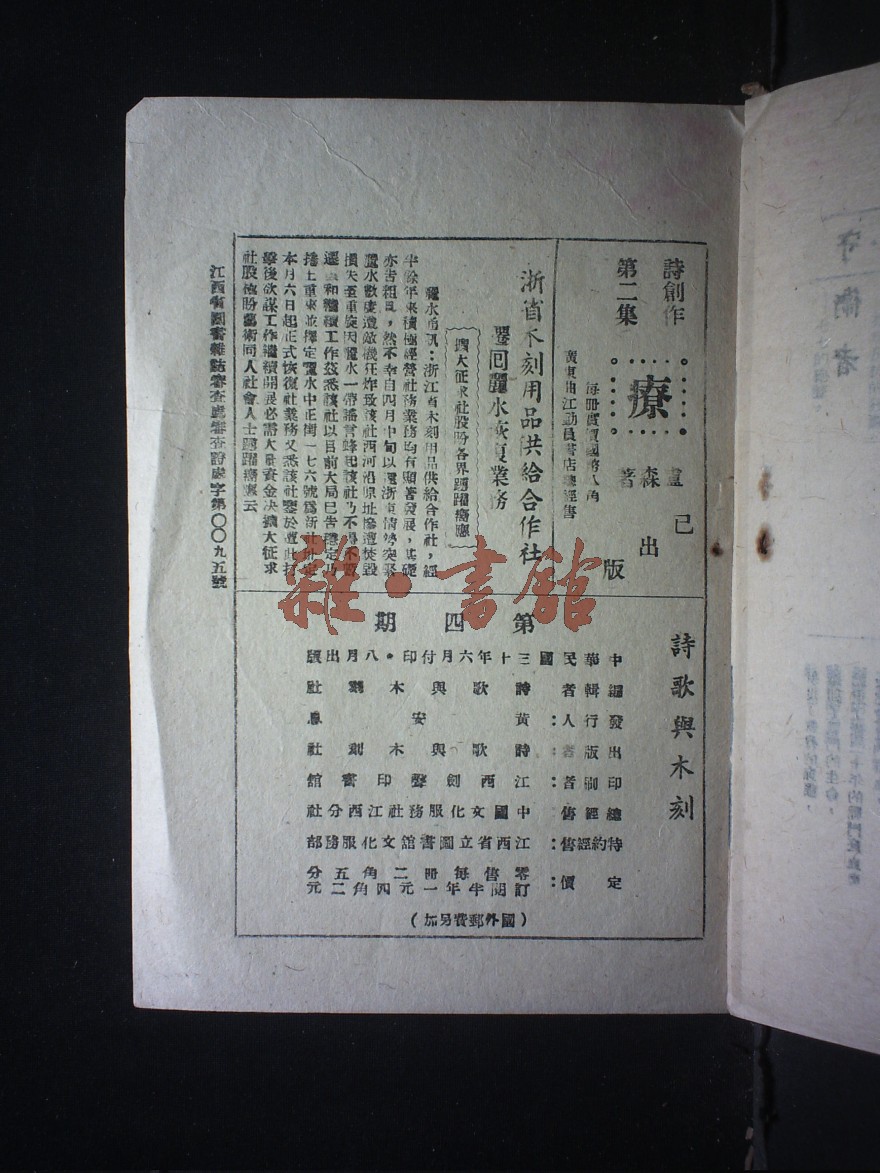 詩創作
第二集
療
盧森著
已出版
每冊實價國幣八角
廣東曲江動員書店總經售
浙省木刻用品供給合作社
遷回麗水恢復業務
擴大征求社股盼各界踴躍響應
麗水通訊：浙江省木刻用品供給合作社，經
半餘年來積極經營社務業務均有顯著發展，基礎
亦告粗具，然不幸自四月中旬以還浙東情勢突緊
麗水數度遭敵機狂炸致該社西河沿原址慘遭焚毀
損失至重旋因麗水一帶謠言蜂起該社乃不得不暫
遷雲和繼續工作茲悉該社以目前大局已告穩定乃
捲土重來並擇定麗水中正街一七六號爲新社址定
本月六日起正式恢復社業務又悉該社鑒於遭此打
擊後欲謀工作繼續開展必需大量資金决擴大征求
社股極盼藝術同人社會人士踴躍響應云
江西省圖書雜誌審查處審查證處字第〇〇九五號
詩歌與木刻
第四期
中華民國三十年六月付印•八月出版
編輯者：詩歌與木刻社
發行人：黃安
出版者：詩歌與木刻社
印刷者：江西創聲印書館
總經售：中國文化服務社江西分社
特約經售：江西省立圖書館文化服務部
定價：零售每冊二角五分
訂閱半年一元四角二元
（國外郵費另加）
雜·書館